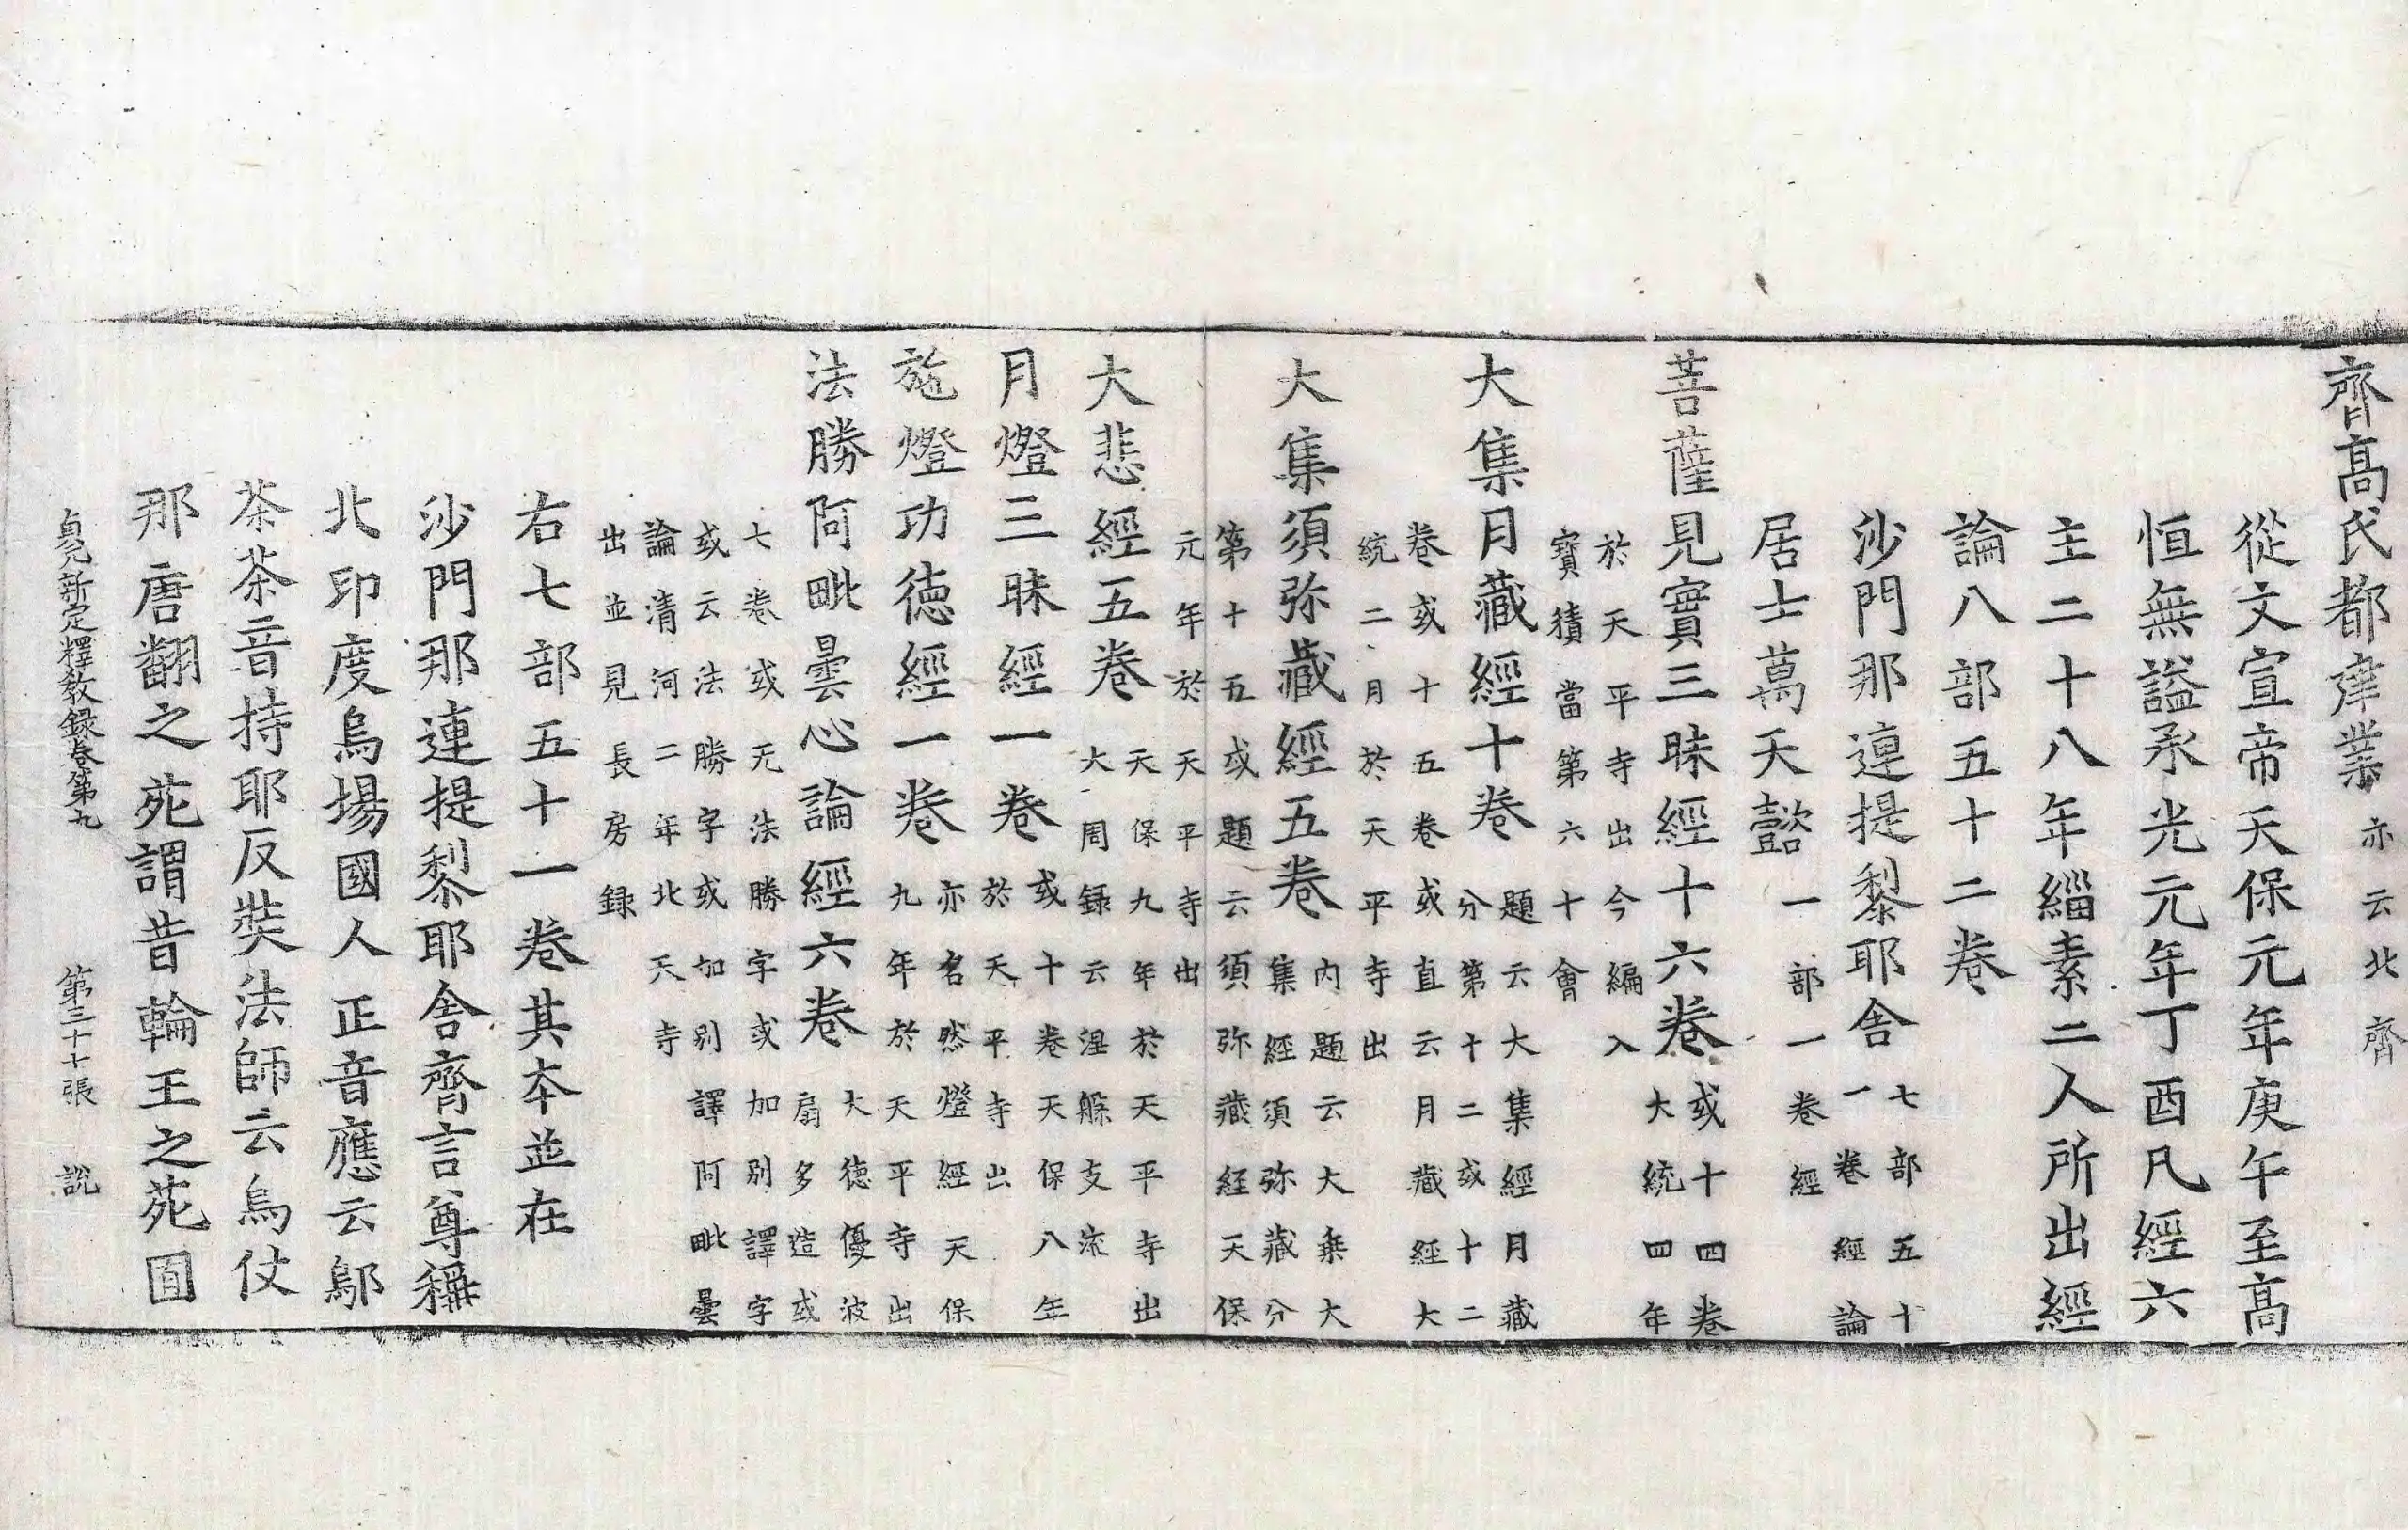 齊髙氏都建業亦云北齊
從文宣帝天保元年庚午至髙
恒無謚承光元年丁酉凡經六
主二十八年緇素二人所出經
論八部五十二卷
沙門那連提黎耶舍七部五十
一卷經論
居士萬天懿一部一卷經
菩薩見實三昧經十六卷或十四卷
大統四年
於天平寺出今編入
寶積當第六十會
大集月藏經十卷題云大集經月藏
分第十二或十二
卷或十五卷或直云月藏經大
統二月於天平寺出
大集須弥藏經五卷内題云大乗大
集經須弥藏分
第十五或題云須弥藏経天保
元年於天平寺出
大悲經五卷天保九年於天平寺出
大周錄云涅槃支流
月燈三昧經一卷或十卷天保八年
於天平寺出
施燈功徳經一卷亦名然燈經天保
九年於天平寺出
法勝阿毗曇心論經六卷大徳優波
扇多造或
七卷或无法勝字或加别譯字
或云法勝字或加别譯阿毗曇
論清河二年北天寺
出並見長房録
右七部五十一卷其本並在
沙門那連提黎耶舍齊言尊稱
北印度烏場國人正音應云鄔
茶茶音持耶反奘法師云烏仗
那唐翻之苑謂昔輪王之苑囿
貞元新定釋教録卷第九　第三十七張　說